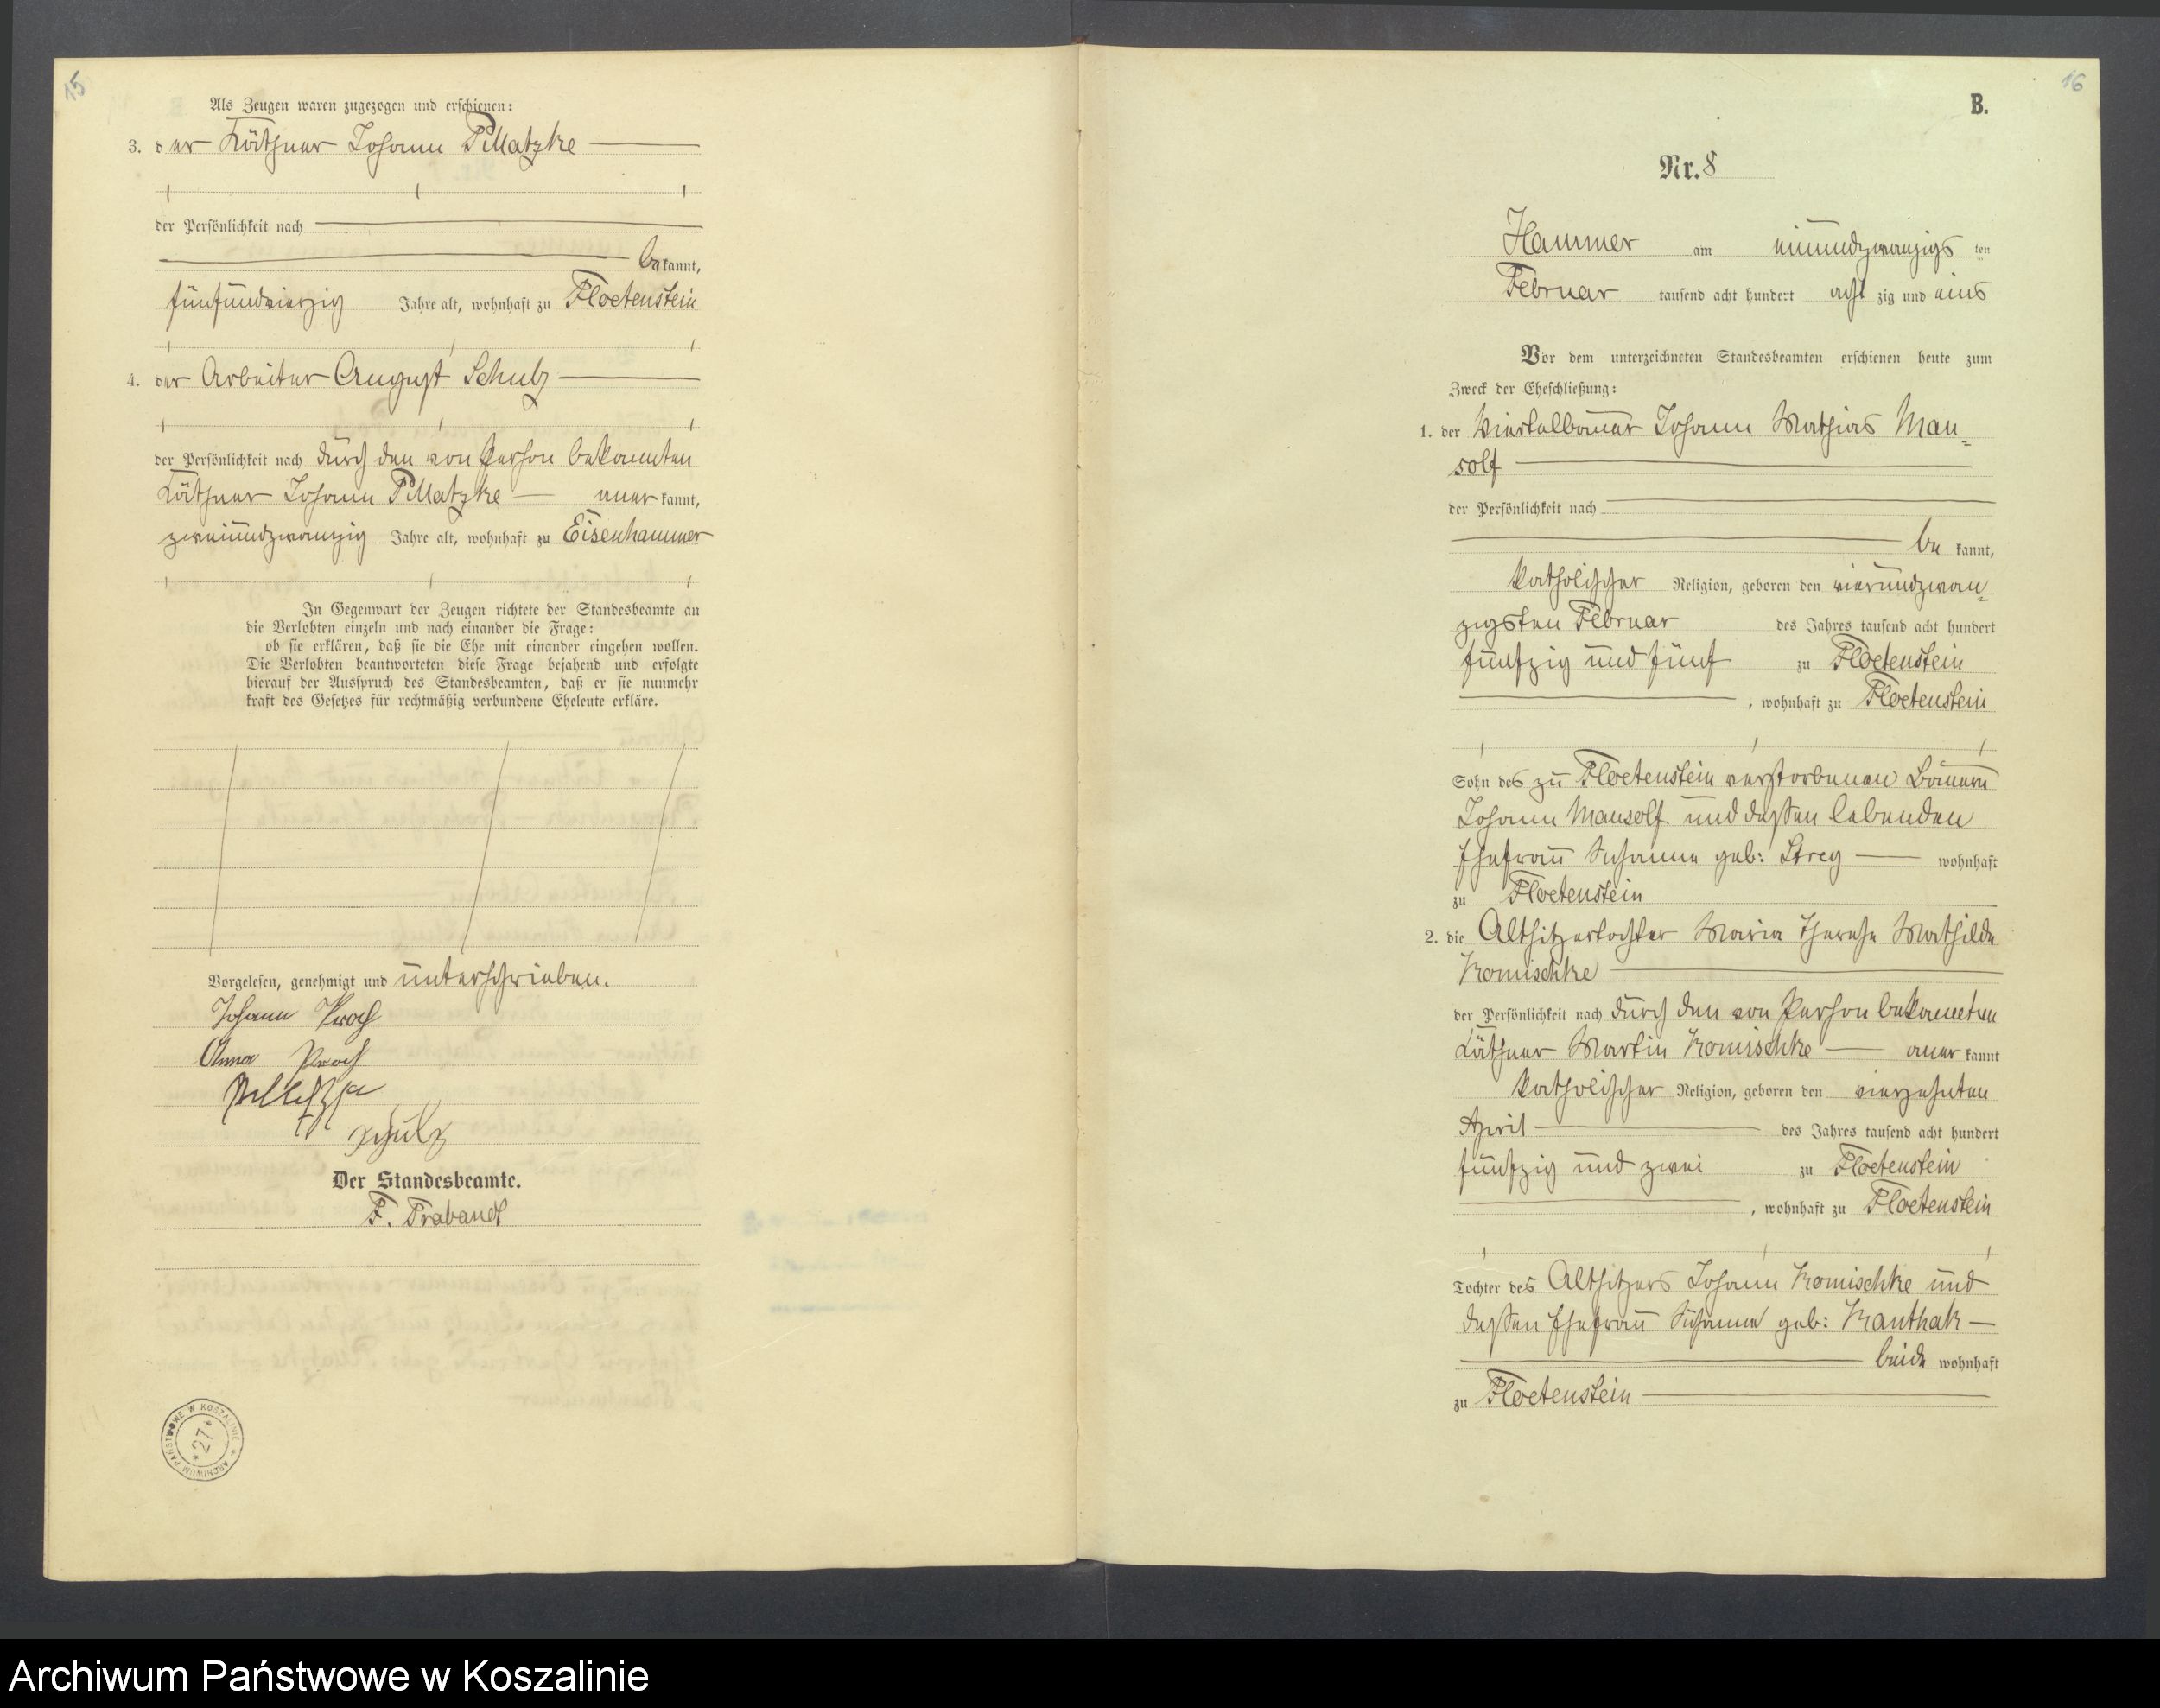 15
Als Zeugen waren zugezogen und erschienen:
3. der Käthner Johann Pillatzke
der Persönlichkeit nach
bekannt,
fünfundvierzig Jahre alt, wohnhaft zu Floetenstein
4. der Arbeiter August Schulz
der Persönlichkeit nach durch den von Person bekannten
Käthner Johann Pillatzke anerkannt,
zweiundzwanzig Jahre alt, wohnhaft zu Eisenhammer
In Gegenwart der Zeugen richtete der Standesbeamte an
die Verlobten einzeln und nach einander die Frage:
ob sie erklären, daß sie die Ehe mit einander eingehen wollen.
Die Verlobten beantworteten diese Frage bejahend und erfolgte
hierauf der Ausspruch des Standesbeamten, daß er sie nunmehr
kraft des Gesetzes für rechtmäßig verbundene Eheleute erkläre.
Vorgelesen, genehmigt und unterschrieben.
Johann Proch
Anna Proch
Schulz
Der Standesbeamte.
F. Trabandt
ARCHIWUM PAŃSTWOWE W KOSZALINIE
* 27 *
16
B.
Nr. 8
Hammer am einundzwanzigsten
Februar tausend acht hundert achtzig und eins
Vor dem unterzeichneten Standesbeamten erschienen heute zum
Zweck der Eheschließung:
1. der Viertelbauer Johann Mathias Man=
solf
der Persönlichkeit nach
bekannt,
katholischer Religion, geboren den vierundzwan=
zigsten Februar des Jahres tausend acht hundert
fünfzig und fünf zu Floetenstein
, wohnhaft zu Floetenstein
Sohn des zu Floetenstein verstorbenen Bauern
Johann Mansolf und dessen lebenden
Ehefrau Susanna geb: Streg wohnhaft
zu Floetenstein
2. die Altsitzertochter Maria Therese Mathilde
Komischke
der Persönlichkeit nach durch den von Person bekannten
Käthner Martin Komischke anerkannt
katholischer Religion, geboren den vierzehnten
April des Jahres tausend acht hundert
fünfzig und zwei zu Floetenstein
, wohnhaft zu Floetenstein
Tochter des Altsitzers Johann Komischke und
dessen Ehefrau Susanna geb: Kanthak
beide wohnhaft
zu Floetenstein
Archiwum Państwowe w Koszalinie